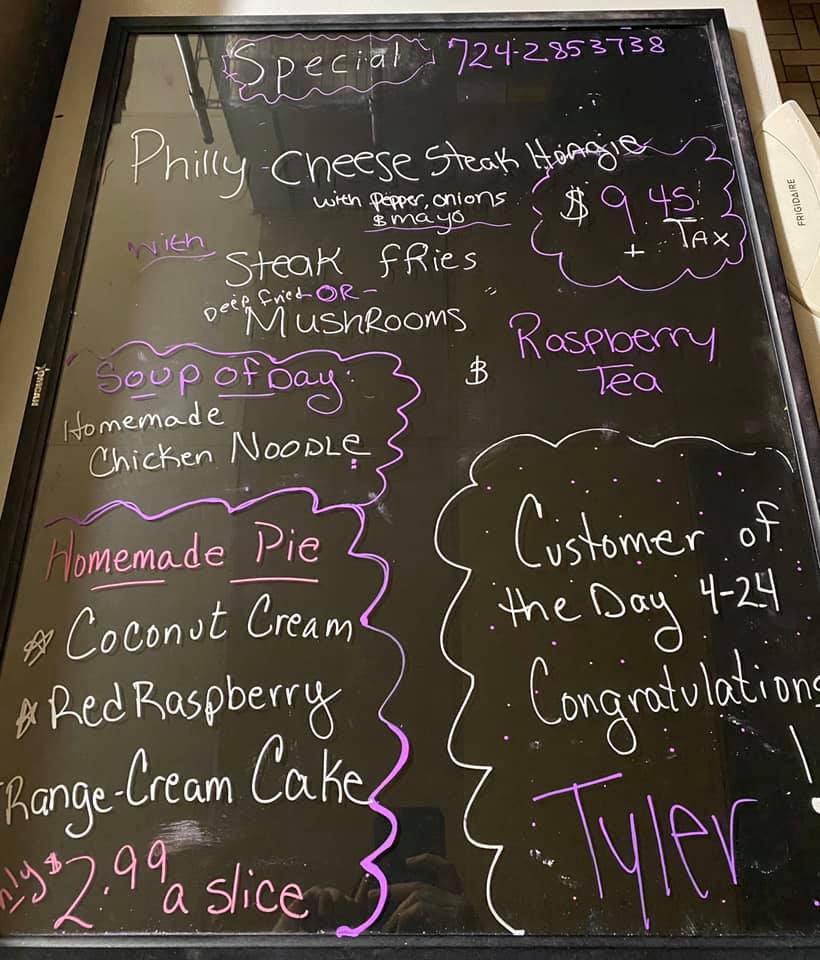 Special 724-2853738
Philly Cheese Steak Hoagie
with Pepper, onions
$ mayo
$ 9.45
+ Tax
with
Steak fRies
Deep fried -OR-
MushRooms
Raspberry
Tea
$
Soup of Day:
Homemade
Chicken Noodle
Homemade Pie
Coconut Cream
Red Raspberry
Range-Cream Cake
nly $2.99
a slice
Customer of
the Day 4-24
Congratulations
!
Tyler
FRIGIDAIRE